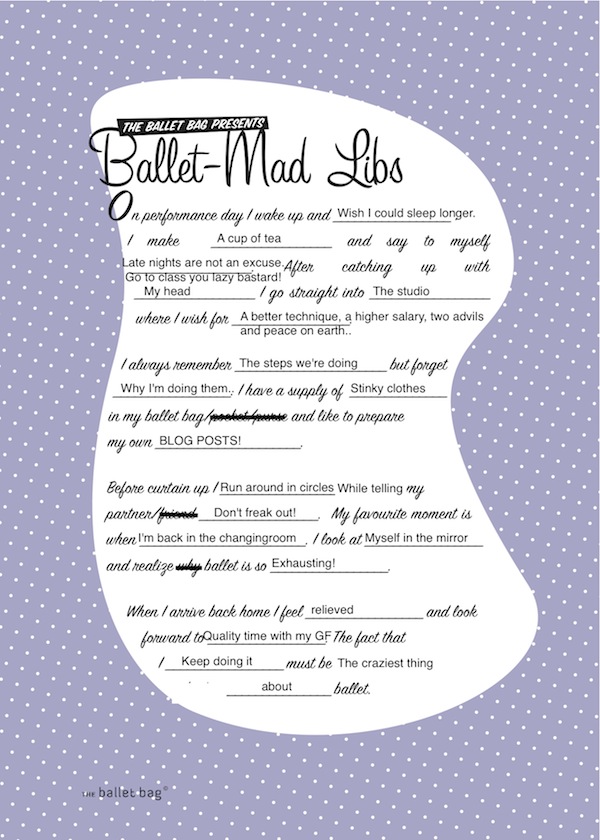 THE BALLET BAG PRESENTS
Ballet-Mad Libs
On performance day I wake up and Wish I could sleep longer.
I make A cup of tea and say to myself
Late nights are not an excuse. After catching up with
Go to class you lazy bastard!
My head I go straight into The studio
where I wish for A better technique, a higher salary, two advils
and peace on earth..
I always remember The steps we're doing but forget
Why I'm doing them.. I have a supply of Stinky clothes
in my ballet bag/pocket/purse and like to prepare
my own BLOG POSTS! .
Before curtain up I Run around in circles While telling my
partner/friend Don't freak out! . My favourite moment is
when I'm back in the changingroom . I look at Myself in the mirror
and realize why ballet is so Exhausting! .
When I arrive back home I feel relieved and look
forward to Quality time with my GF. The fact that
I Keep doing it must be The craziest thing
about ballet.
THE ballet bag©